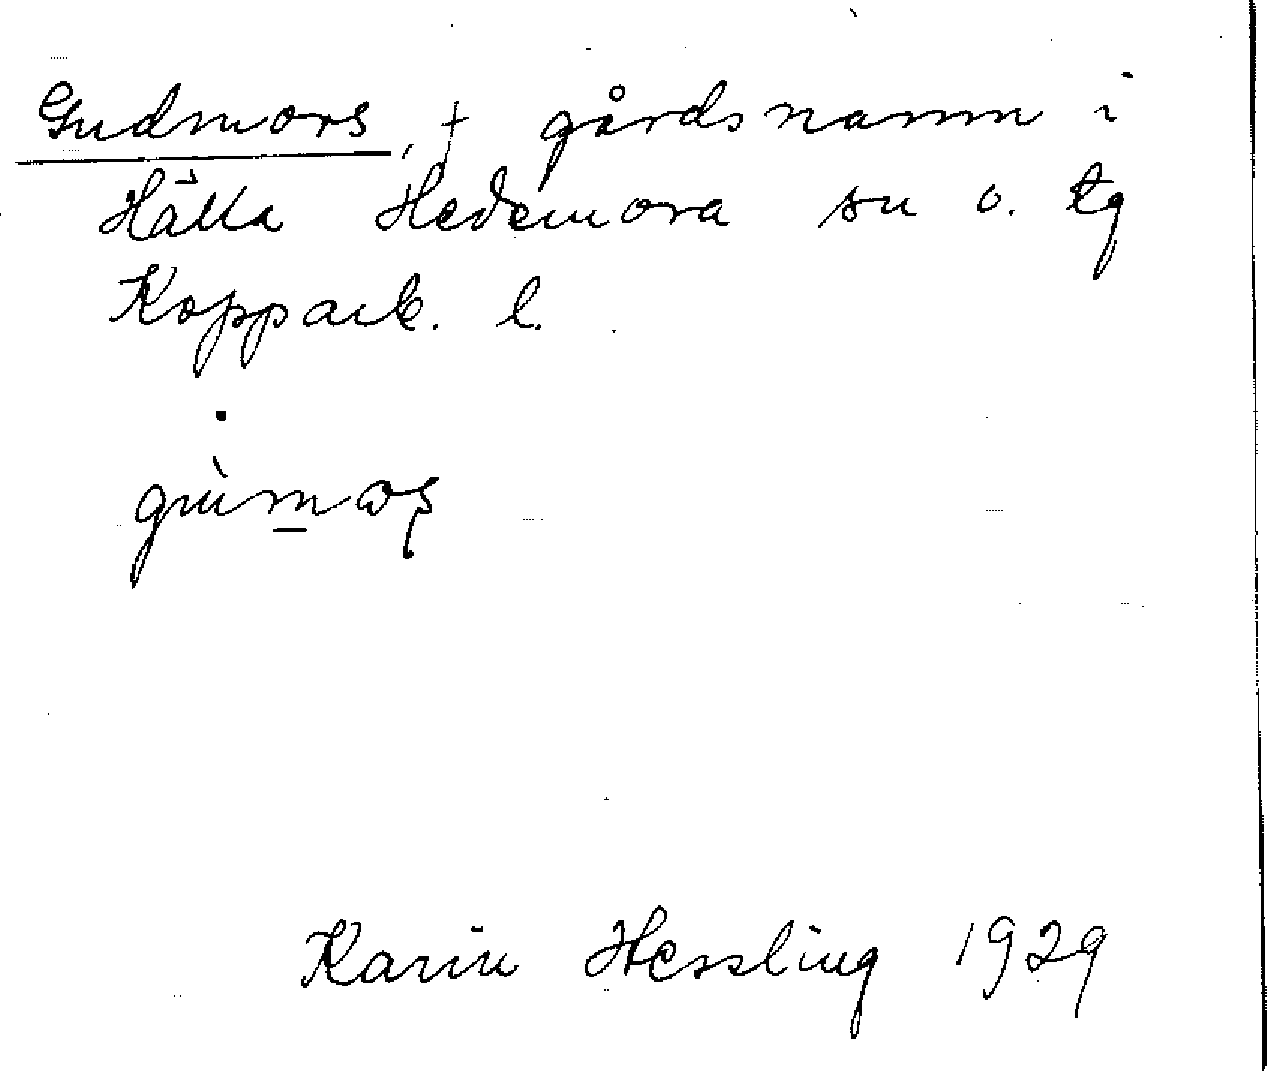 Gudmors, + gårdsnamn i
Hälla Hedemora sn o. tg
Kopparb. l.
Karin Hessling 1929